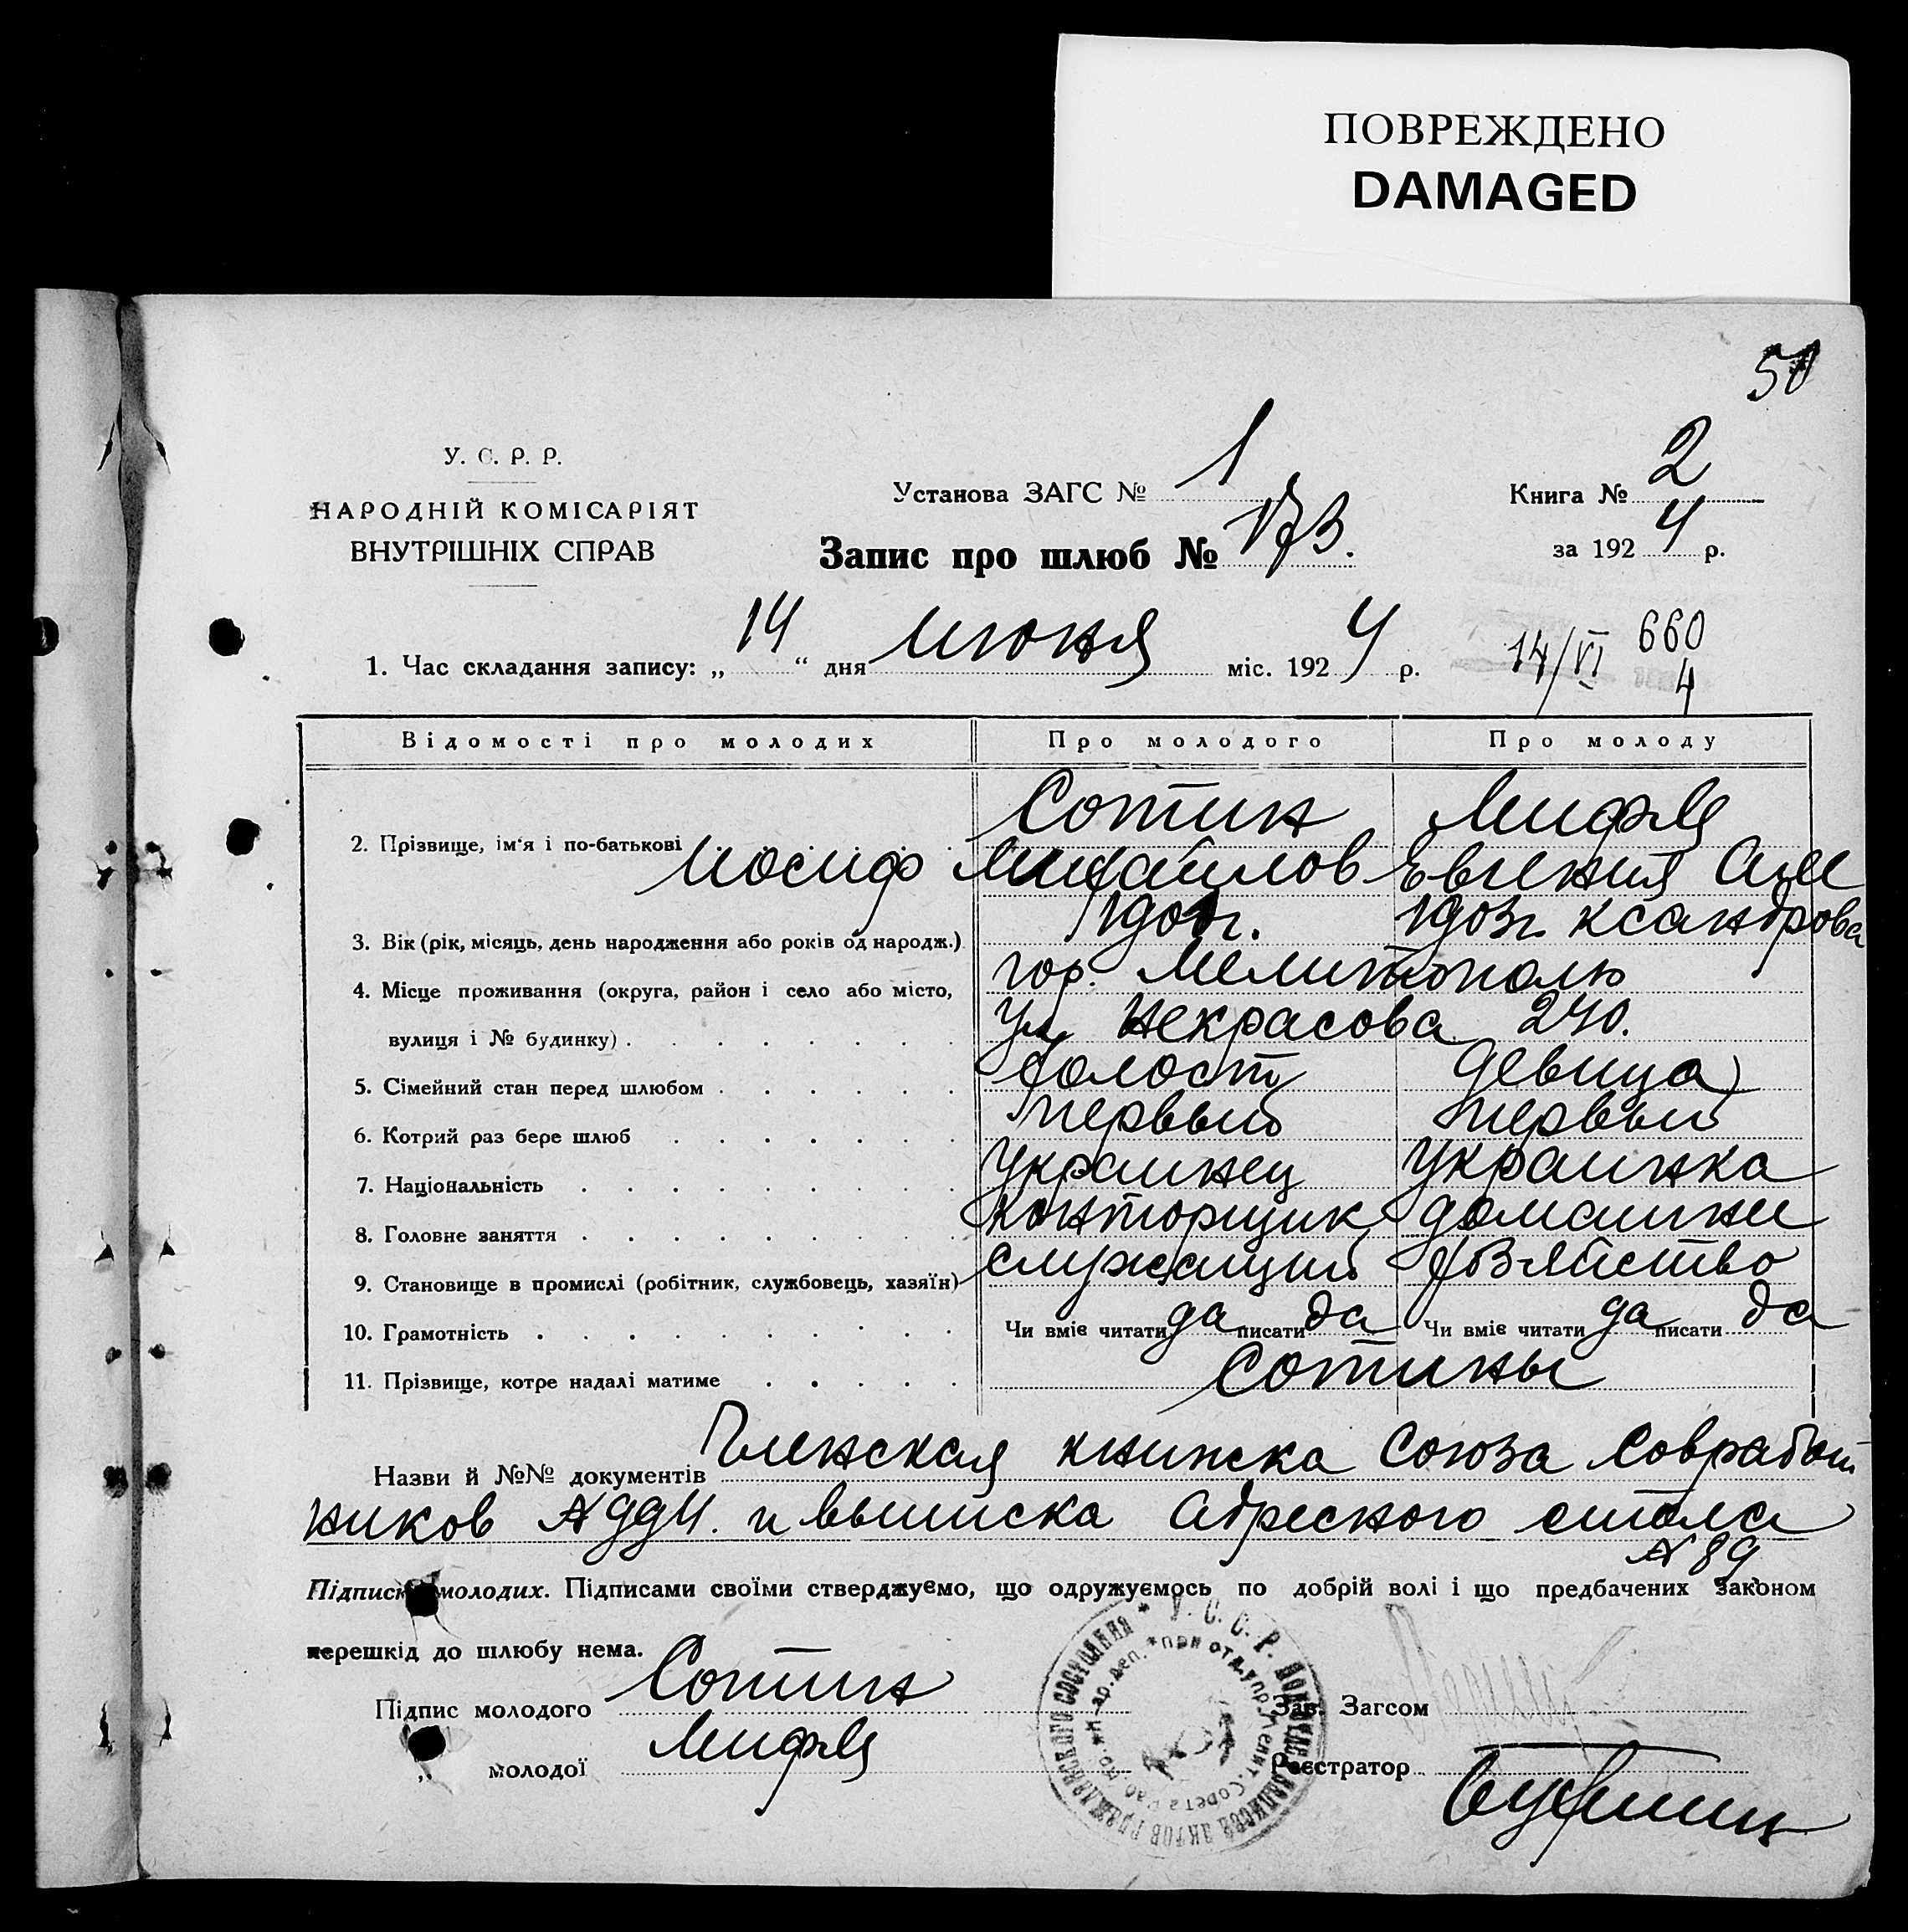 ПОВРЕЖДЕНО
DAMAGED
У. С. Р. Р.
НАРОДНІЙ КОМІСАРІЯТ
ВНУТРІШНІХ СПРАВ
Установа ЗАГС № 1
Книга № 2
Запис про шлюб № 173.
за 1924 р.
1. Час складання запису: „14“ дня июня міс. 1924 р.
14/VI 660
4
Відомості про молодих Про молодого Про молоду
Сотин
2. Прізвище, ім'я і по-батькові Иосиф Михайлов Евгения Але
ксандрова
3. Вік (рік, місяць, день народження або років од народж.) 1903г.
4. Місце проживання (округа, район і село або місто, гор. Мелитополь
вулиця і № будинку) ул Некрасова 240.
5. Сімейний стан перед шлюбом холост девица
6. Котрий раз бере шлюб первый первый
7. Національність украинец украинка
8. Головне заняття конторщик домашнее
9. Становище в промислі (робітник, службовець, хазяїн) служащий хозяйство
10. Грамотність Чи вміє читати да писати да Чи вміє читати да писати да
11. Прізвище, котре надалі матиме Сотины
Назви й №№ документів Членская книжка Союза Совработ
ников № 994. и выписка адресного стола
№ 89
Підписи молодих. Підписами своїми стверджуємо, що одружуємось по добрій волі і що предбачених законом
перешкід до шлюбу нема.
Підпис молодого Сотин
Зав. Загсом
„ молодої
Реєстратор